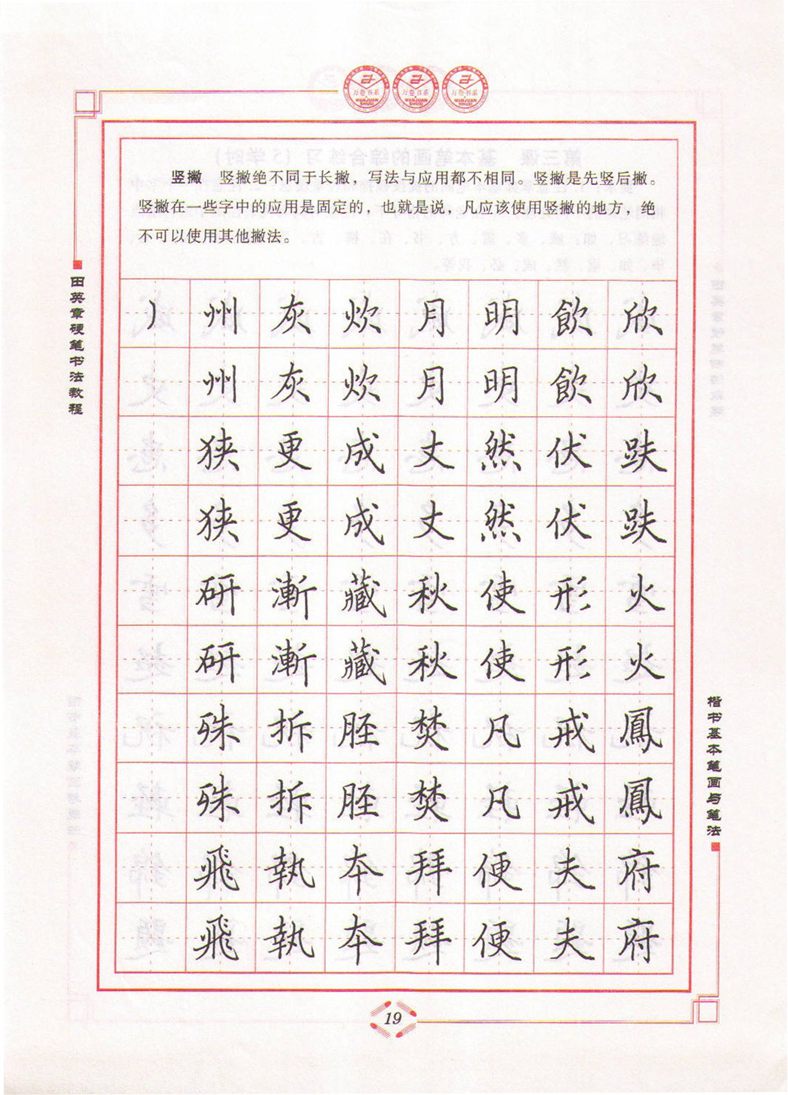 万卷书系 万卷书系 万卷书系
竖撇 竖撇绝不同于长撇，写法与应用都不相同。竖撇是先竖后撇。
竖撇在一些字中的应用是固定的，也就是说，凡应该使用竖撇的地方，绝
不可以使用其他撇法。
田英章硬笔书法教程
丿 州 灰 炊 月 明 飲 欣
州 灰 炊 月 明 飲 欣
狭 更 成 丈 然 伏 趺
狭 更 成 丈 然 伏 趺
研 漸 藏 秋 使 形 火
研 漸 藏 秋 使 形 火
殊 拆 胫 焚 凡 戒 鳳
殊 拆 胫 焚 凡 戒 鳳
飛 執 本 拜 便 夫 府
飛 執 本 拜 便 夫 府
楷书基本笔画与笔法
19